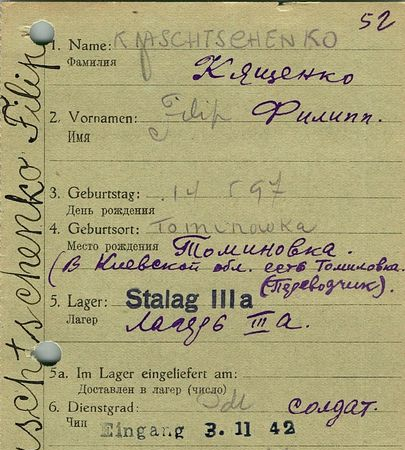 52
1. Name: KJASCHTSCHENKO
Фамилия Кященко
2. Vornamen: Filip Филипп.
Имя
3. Geburtstag: 14 5 97
День рождения
4. Geburtsort: Tominowka
Место рождения Томиновка.
(В Киевской обл. есть Томиловка.
(Переводчик).
5. Lager: Stalag IIIa
Лагерь Лагерь III А.
5a. Im Lager eingeliefert am:
Доставлен в лагерь (число)
6. Dienstgrad: Sdl солдат.
Чин Eingang 3. 11 42
schtschenko Filip